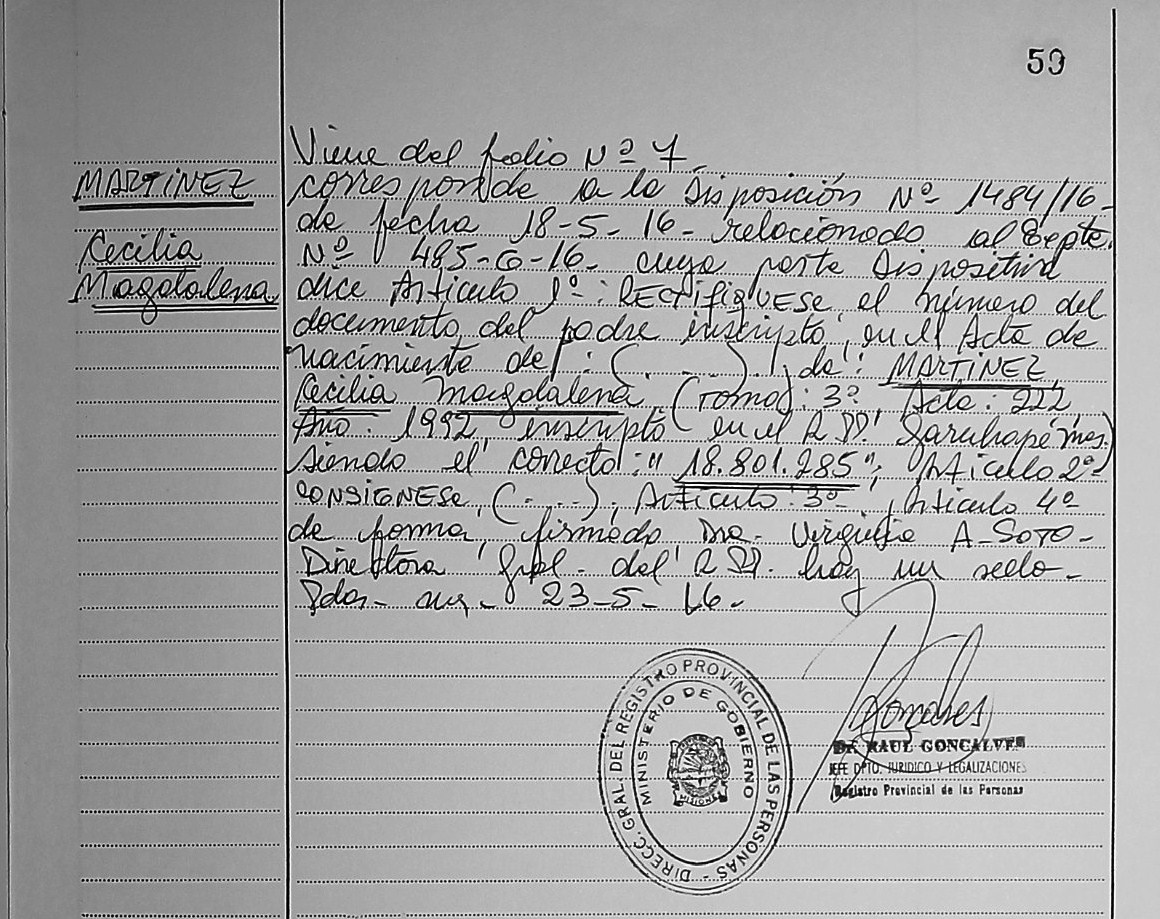 59
Viene del folio Nº 7-
MARTINEZ
corresponde a la Disposición Nº 1484/16-
de fecha 18-5-16- relacionado al Expte.
Cecilia
Nº 485-G-16- cuya parte Dispositiva
Magdalena
dice Articulo 1º: RECTIFIQUESE, el número del
documento, del padre inscripto, en el Acta de
nacimiento de: (.....). de: MARTINEZ,
Cecilia Magdalena, (Tomo): 3º Acta: 222,
Año: 1992, inscripto en el R.PP. Garuhapé, Mnes.)
siendo el correcto: "18.801.285", Articulo 2º-
CONSIGNESE, (.....), Articulo: 3º, Articulo 4º
de forma, firmado Dra. Virginia A-SOTO-
Directora Gral. del R.PP. hay un sello-
Pdas- 23-5-16-
DIRECC. GRAL. DEL REGISTRO PROVINCIAL DE LAS PERSONAS -
MINISTERIO DE GOBIERNO
MISIONES
DR. RAUL GONCALVES
JEFE DPTO. JURIDICO Y LEGALIZACIONES
Registro Provincial de las Personas